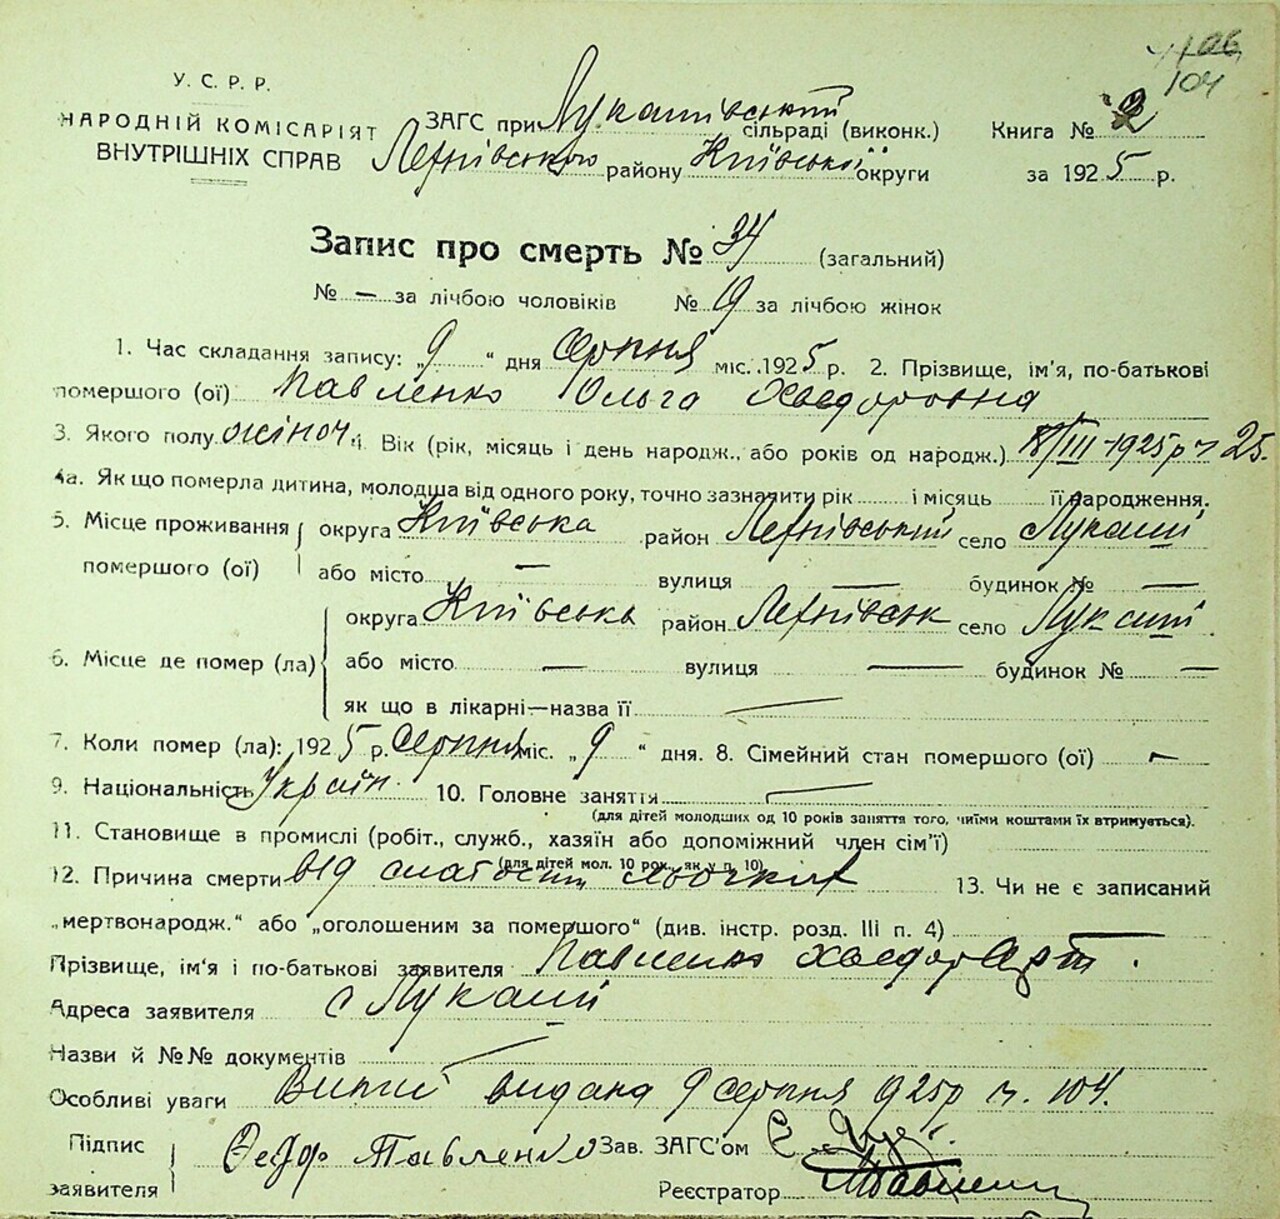 104
У. С. Р. Р.
НАРОДНІЙ КОМІСАРІЯТ
ВНУТРІШНІХ СПРАВ
ЗАГС при Лукашівський сільраді (виконк.)
Книга № 2
району Київської округи
за 1925 р.
Запис про смерть № 34 (загальний)
№ — за лічбою чоловіків № 19 за лічбою жінок
1. Час складання запису: „9“ дня Серпня міс. 1925 р. 2. Прізвище, ім'я, по-батькові
помершого (ої) Павленко Ольга Хведоровна
3. Якого полу жіноч. 4. Вік (рік, місяць і день народж., або років од народж.) 8/III-1925р 25.
4а. Як що померла дитина, молодша від одного року, точно зазначити рік і місяць її народження.
5. Місце проживання помершого (ої) округа Київська район село Лукаші
або місто — вулиця — будинок № —
6. Місце де помер (ла) округа Київська район село Лукаші
або місто — вулиця — будинок № —
як що в лікарні—назва її —
7. Коли помер (ла): 1925 р. Серпня міс. „9“ дня. 8. Сімейний стан помершого (ої) —
9. Національність Україн. 10. Головне заняття —
(для дітей молодших од 10 років заняття того, чиїми коштами їх втримується).
11. Становище в промислі (робіт., служб., хазяїн або допоміжний член сім'ї)
(для дітей мол. 10 рок., як у п. 10)
12. Причина смерти від 13. Чи не є записаний
„мертвонародж.“ або „оголошеним за помершого“ (див. інстр. розд. III п. 4) —
Прізвище, ім'я і по-батькові заявителя Павленко Хведор Арт.
Адреса заявителя с Лукаші
Назви й №№ документів —
Особливі уваги Випис видана 9 серпня 1925р 104.
Підпис заявителя Федір Павленко Зав. ЗАГС'ом
Реєстратор